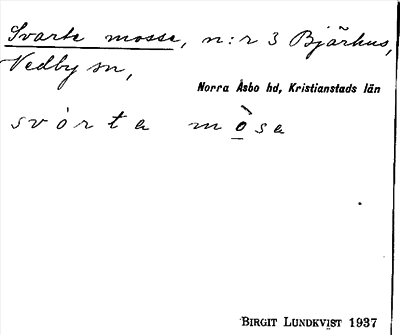 Svarte mosse, n:r 3 Bjärhus,
Vedby sn,
Norra Åsbo hd, Kristianstads län
svȯrta mȯ̱̀sa
BIRGIT LUNDKVIST 1937